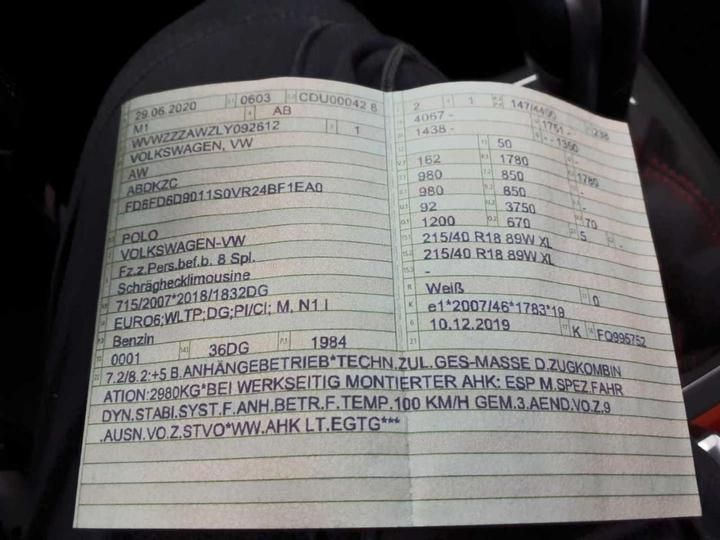 29.06.2020 0603 CDU00042 8
M1 AB
WVWZZZAWZLY092612 1
VOLKSWAGEN, VW
AW
ABDKZC
FD8FD6D9011S0VR24BF1EA0
POLO
VOLKSWAGEN-VW
Fz.z.Pers.bef.b. 8 Spl.
Schräghecklimousine
715/2007*2018/1832DG
EURO6;WLTP;DG;PI/CI; M, N1 I
Benzin
0001 36DG 1984
2 1 147/4400 238
4067 - 1751 -
1438 - - 1350
50
162 1780 1780
980 850
980 850
92 3750 -
1200 670 70
215/40 R18 89W XL 5 -
215/40 R18 89W XL
-
Weiß 0
e1*2007/46*1783*19
10.12.2019 K FQ995752
7.2/8.2:+5 B.ANHÄNGEBETRIEB*TECHN.ZUL.GES-MASSE D.ZUGKOMBIN
ATION:2980KG*BEI WERKSEITIG MONTIERTER AHK: ESP M.SPEZ.FAHR
DYN.STABI.SYST.F.ANH.BETR.F.TEMP.100 KM/H GEM.3.AEND.VO.Z.9
.AUSN.VO.Z.STVO*WW.AHK LT.EGTG***